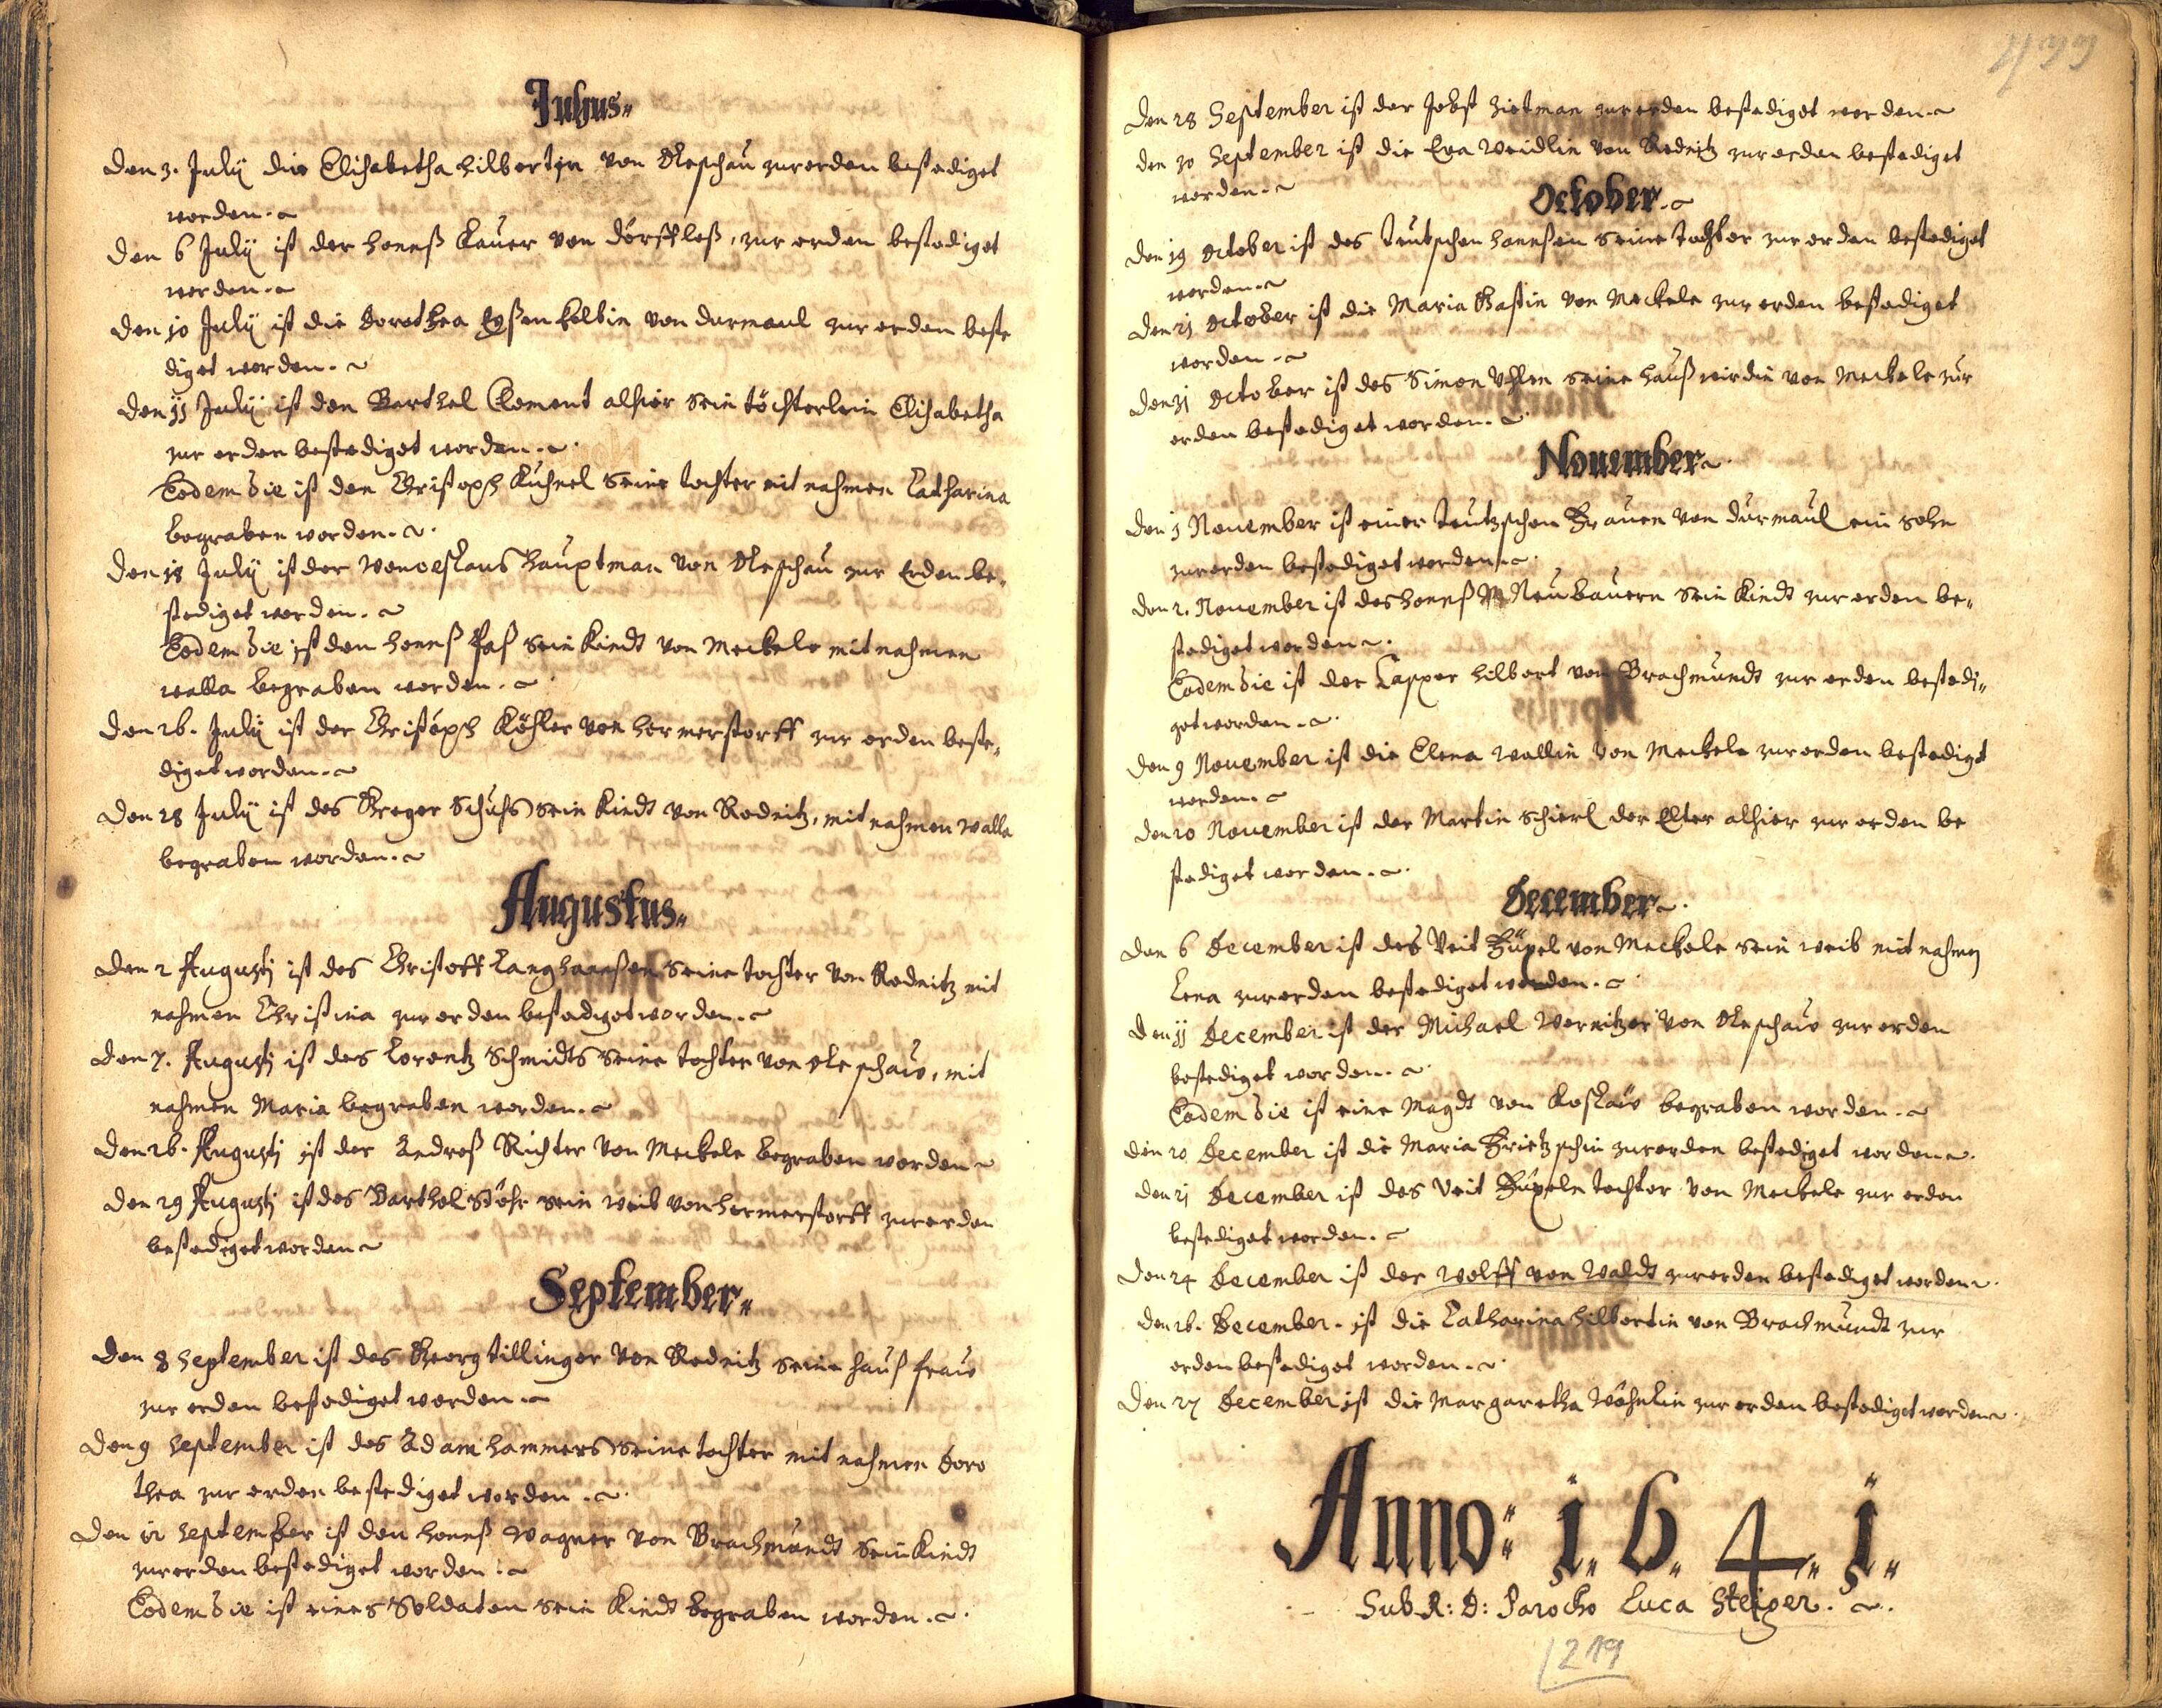 Julyus
Den 3. July die Elisabetha hilbertin von Oleschau zur erden bestediget
worden.
Den 6 July ist der honnß Lauer von dörffleß, zur erden bestediget
worden.
Den 10 July ist die Dorothea von durmaul zur erden beste
diget worden.
Den 11 July ist den Barthel Clement alhier sein töchterlein Elisabetha
zur erden bestediget worden.
Eodem die ist den Christoph Kuhnel seine tochter mit nahmen Catharina
begraben worden.
Den 18 July ist der Wenceslaus Hauptman von Oleschau zur Erden be,
stediget worden.
Eodem die ist den honnß sein Kindt von Meckele mit nahmen
walla begraben worden.
Den 26. July ist der Christoph Köhler von hermerstorff zur erden beste,
diget worden.
Den 28 July ist des Greger Schuhs sein Kindt von Rodnitz, mit nahmen Walla
begraben worden.
Augustus
Den 2 Augusti ist des Christoff Langhanßen seine tochter von Rodnitz mit
nahmen Christina zur erden bestediget worden.
Den 7. Augusti ist des Lorentz Schmidts seine tochter von Oleschaw, mit
nahmen Maria begraben worden.
Den 26. Augusti ist der Andreß Richter von Meckele begraben worden
Den 29 Augusti ist des Barthel Stöhr sein weib von hermerstorff zur erden
bestediget worden
September
Den 8 September ist des Georg tillinger von Rodnitz seine hauß fraw
zur erden bestediget worden.
Den 9 September ist des Adam hammers seine tochter mit nahmen Doro
thea zur erden bestediget worden.
Den 12 September ist den honnß Wagner von Brachmundt sein Kindt
zur erden bestediget worden.
Eodem die ist eines Soldaten sein Kindt begraben worden.
Den 28 September ist der Jobst zur erden bestediget worden.
Den 30 September ist die Eva Weidlin von Rodnitz zur erden bestediget
worden.
October
Den 19 October ist des teutschen honnßen seine tochter zur erden bestediget
worden.
Den 21 October ist die Maria Gastin von Meckele zur erden bestediget
worden.
Den 31 October ist des Simon Uhlen seine haußwirdin von Meckele zur
erden bestediget worden.
Nouember
Den 1 Nouember ist einer teutzschen Frauen von durmaul ein sohn
zur erden bestediget worden.
Den 2. Nouember ist des honnß Neubauern sein Kindt zur erden be,
stediget worden.
Eodem die ist der Casper hilbert von Brachmundt zur erden bestedi,,
get worden.
Den 9 Nouember ist die Elena wallin von Meckele zur erden bestedigt
worden.
Den 20 Nouember ist der Martin Schierl der Elter alhier zur erden be
stediget worden.
December
Den 6 December ist des Veit von Meckele sein weib mit nahmen
Lena zur erden bestediget worden.
Den 11 December ist der Michael Wernitzer von Oleschaw zur erden
bestediget worden.
Eodem die ist eine Magdt von Koslaw begraben worden.
Den 20 December ist die Maria Frietzschin zur erden bestediget worden.
Den 21 December ist des Veit tochter von Meckele zur erden
bestediget worden.
Den 24 December ist der Wolff von Waldt zur erden bestediget worden.
Den 26. December. ist die Catharina hilbertin von Brachmundt zur
erden bestediget worden.
Den 27 December ist die Margaretha zur erden bestediget worden.
Anno 1. 6. 4. 1.
Sub R: D: Parocho Luca Steiper.
219